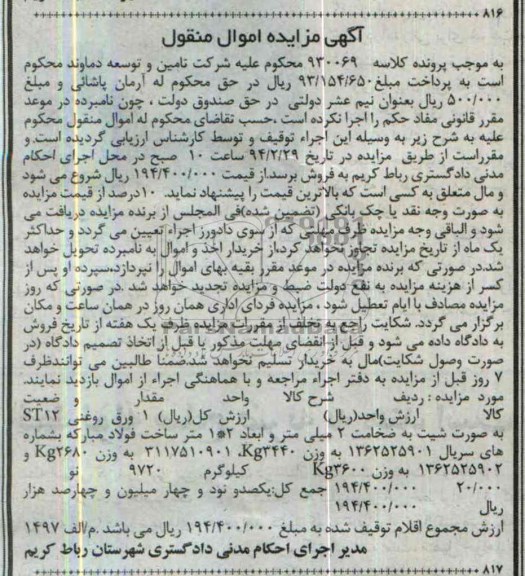 ۸۱۶
آگهی مزایده اموال منقول
به موجب پرونده کلاسه ۹۳۰۰۶۹ محکوم علیه شرکت تامین و توسعه دماوند محکوم
است به پرداخت مبلغ ۹۳/۱۵۴/۶۵۰ ریال در حق محکوم له آرمان پاشائی و مبلغ
۵۰۰/۰۰۰ ریال بعنوان نیم عشر دولتی در حق صندوق دولت ، چون نامبرده در موعد
مقرر قانونی مفاد حکم را اجرا نکرده است ،حسب تقاضای محکوم له اموال منقول محکوم
علیه به شرح زیر به وسیله این اجراء توقیف و توسط کارشناس ارزیابی گردیده است.و
مقرراست از طریق مزایده در تاریخ ۹۴/۲/۲۹ ساعت ۱۰ صبح در محل اجرای احکام
مدنی دادگستری رباط کریم به فروش برسد.از قیمت ۱۹۴/۴۰۰/۰۰۰ ریال شروع می شود
و مال متعلق به کسی است که بالاترین قیمت را پیشنهاد نماید. ۱۰درصد از قیمت مزایده
به صورت وجه نقد یا چک بانکی (تضمین شده)فی المجلس از برنده مزایده دریافت می
شود و الباقی وجه مزایده ظرف مهلتی که از سوی دادورز اجراء تعیین می گردد و حداکثر
یک ماه از تاریخ مزایده تجاوز نخواهد کرد،از خریدار اخذ و اموال به نامبرده تحویل خواهد
شد.در صورتی که برنده مزایده در موعد مقرر بقیه بهای اموال را نپردازد،سپرده او پس از
کسر از هزینه مزایده به نفع دولت ضبط و مزایده تجدید خواهد شد .در صورتی که روز
مزایده مصادف با ایام تعطیل شود ، مزایده فردای اداری همان روز در همان ساعت و مکان
برگزار می گردد. شکایت راجع به تخلف از مقررات مزایده ظرف یک هفته از تاریخ فروش
به دادگاه داده می شود و قبل از انقضای مهلت مذکور یا قبل از اتخاذ تصمیم دادگاه (در
صورت وصول شکایت)مال به خریدار تسلیم نخواهد شد.ضمنا طالبین می توانندظرف
۷ روز قبل از مزایده به دفتر اجراء مراجعه و با هماهنگی اجراء از اموال بازدید نمایند.
مورد مزایده : ردیف شرح کالا واحد مقدار و ضعیت
کالا ارزش واحد(ریال) ارزش کل(ریال) ۱ ورق روغنی ST۱۲
به صورت شیت به ضخامت ۲ میلی متر و ابعاد ۲*۱ متر ساخت فولاد مبارکه بشماره
های سریال ۱۳۶۲۵۲۵۹۰۱ به وزن Kg۳۴۴۰، ۳۱۱۷۵۱۰۹۰۱ به وزن Kg۲۶۸۰ و
۱۳۶۲۵۲۵۹۰۲ به وزن Kg۳۶۰۰ کیلوگرم ۹۷۲۰ نو
۲۰/۰۰۰ ۱۹۴/۴۰۰/۰۰۰ جمع کل:یکصدو نود و چهار میلیون و چهارصد هزار
ریال ۱۹۴/۴۰۰/۰۰۰
ارزش مجموع اقلام توقیف شده به مبلغ ۱۹۴/۴۰۰/۰۰۰ ریال می باشد .م/الف ۱۴۹۷
مدیر اجرای احکام مدنی دادگستری شهرستان رباط کریم
۸۱۷